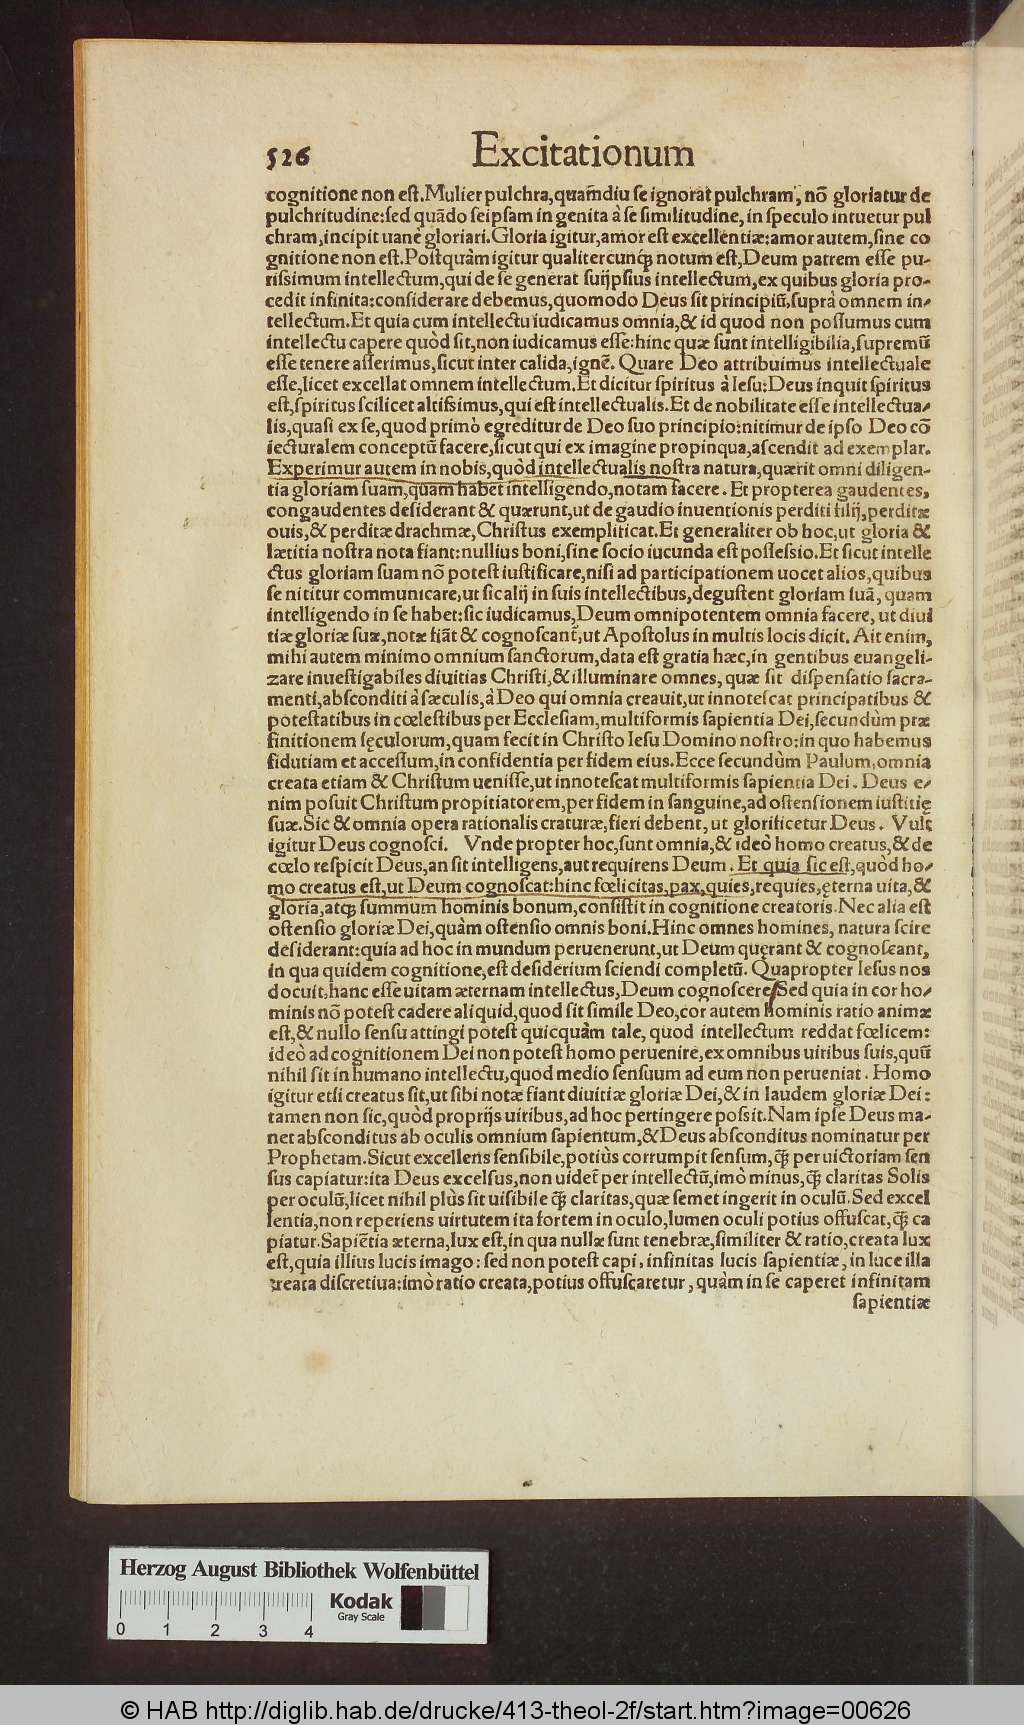 526 Excitationum
cognitione non eſt. Mulier pulchra, quamdiu ſe ignorat pulchram, nõ gloriatur de
pulchritudine: ſed quãdo ſeipſam in genita à ſe ſimilitudine, in ſpeculo intuetur pul
chram, incipit uanè gloriari. Gloria igitur, amor eſt excellentiæ: amor autem, ſine co
gnitione non eſt. Poſtquàm igitur qualitercunq́; notum eſt, Deum patrem eſſe pu-
riſsimum intellectum, qui de ſe generat ſuijpſius intellectum, ex quibus gloria pro-
cedit infinita: conſiderare debemus, quomodo Deus ſit principiũ, ſuprà omnem in-
tellectum. Et quia cum intellectu iudicamus omnia, & id quod non poſſumus cum
intellectu capere quòd ſit, non iudicamus eſſe: hinc quæ ſunt intelligibilia, ſupremũ
eſſe tenere aſſerimus, ſicut inter calida, ignẽ. Quare Deo attribuimus intellectuale
eſſe, licet excellat omnem intellectum. Et dicitur ſpiritus à Ieſu: Deus inquit ſpiritus
eſt, ſpiritus ſcilicet altiſsimus, qui eſt intellectualis. Et de nobilitate eſſe intellectua-
lis, quaſi ex ſe, quod primò egreditur de Deo ſuo principio: nitimur de ipſo Deo cõ
iecturalem conceptũ facere, ſicut qui ex imagine propinqua, aſcendit ad exemplar.
Experimur autem in nobis, quòd intellectualis noſtra natura, quærit omni diligen-
tia gloriam ſuam, quam habet intelligendo, notam facere. Et propterea gaudentes,
congaudentes deſiderant & quærunt, ut de gaudio inuentionis perditi filij, perditæ
ouis, & perditæ drachmæ, Chriſtus exemplificat. Et generaliter ob hoc, ut gloria &
lætitia noſtra nota fiant: nullius boni, ſine ſocio iucunda eſt poſſeſsio. Et ſicut intelle
ctus gloriam ſuam nõ poteſt iuſtificare, niſi ad participationem uocet alios, quibus
ſe nititur communicare, ut ſic alij in ſuis intellectibus, deguſtent gloriam ſuã, quam
intelligendo in ſe habet: ſic iudicamus, Deum omnipotentem omnia facere, ut diui
tiæ gloriæ ſuæ, notæ fiãt & cognoſcant̃, ut Apoſtolus in multis locis dicit. Ait enim,
mihi autem minimo omnium ſanctorum, data eſt gratia hæc, in gentibus euangeli-
zare inueſtigabiles diuitias Chriſti, & illuminare omnes, quæ ſit diſpenſatio ſacra-
menti, abſconditi à ſæculis, à Deo qui omnia creauit, ut innoteſcat principatibus &
poteſtatibus in cœleſtibus per Eccleſiam, multiformis ſapientia Dei, ſecundùm præ
finitionem ſęculorum, quam fecit in Chriſto Ieſu Domino noſtro: in quo habemus
fidutiam et acceſſum, in confidentia per fidem eius. Ecce ſecundùm Paulum, omnia
creata etiam & Chriſtum ueniſſe, ut innoteſcat multiformis ſapientia Dei. Deus e-
nim poſuit Chriſtum propitiatorem, per fidem in ſanguine, ad oſtenſionem iuſtitię
ſuæ. Sic & omnia opera rationalis craturæ, fieri debent, ut glorificetur Deus. Vult
igitur Deus cognoſci. Vnde propter hoc, ſunt omnia, & ideò homo creatus, & de
cœlo reſpicit Deus, an ſit intelligens, aut requirens Deum. Et quia ſic eſt, quòd ho-
mo creatus eſt, ut Deum cognoſcat: hinc fœlicitas, pax, quies, requies, ęterna uita, &
gloria, atq́; ſummum hominis bonum, conſiſtit in cognitione creatoris. Nec alia eſt
oſtenſio gloriæ Dei, quàm oſtenſio omnis boni. Hinc omnes homines, natura ſcire
deſiderant: quia ad hoc in mundum peruenerunt, ut Deum quęrant & cognoſcant,
in qua quidem cognitione, eſt deſiderium ſciendi completũ. Quapropter Ieſus nos
docuit, hanc eſſe uitam æternam intellectus, Deum cognoſcere. Sed quia in cor ho-
minis nõ poteſt cadere aliquid, quod ſit ſimile Deo, cor autem hominis ratio animæ
eſt, & nullo ſenſu attingi poteſt quicquàm tale, quod intellectum reddat fœlicem:
ideò ad cognitionem Dei non poteſt homo peruenire, ex omnibus uiribus ſuis, quũ
nihil ſit in humano intellectu, quod medio ſenſuum ad eum non perueniat. Homo
igitur etſi creatus ſit, ut ſibi notæ fiant diuitiæ gloriæ Dei, & in laudem gloriæ Dei:
tamen non ſic, quòd proprijs uiribus, ad hoc pertingere poſsit. Nam ipſe Deus ma-
net abſconditus ab oculis omnium ſapientum, & Deus abſconditus nominatur per
Prophetam. Sicut excellens ſenſibile, potiùs corrumpit ſenſum, q̃; per uictoriam ſen
ſus capiatur: ita Deus excelſus, non uidet̃ per intellectũ, imò minus, q̃; claritas Solis
per oculũ, licet nihil plùs ſit uiſibile q̃; claritas, quæ ſemet ingerit in oculũ. Sed excel
lentia, non reperiens uirtutem ita fortem in oculo, lumen oculi potius offuſcat, q̃; ca
piatur. Sapiẽtia æterna, lux eſt, in qua nullæ ſunt tenebræ, ſimiliter & ratio, creata lux
eſt, quia illius lucis imago: ſed non poteſt capi, infinitas lucis ſapientiæ, in luce illa
creata diſcretiua: imò ratio creata, potius offuſcaretur, quàm in ſe caperet infinitam
ſapientiæ
Herzog August Bibliothek Wolfenbüttel
Kodak
Gray Scale
0 1 2 3 4
© HAB http://diglib.hab.de/drucke/413-theol-2f/start.htm?image=00626